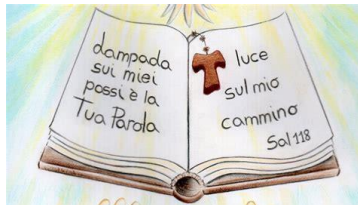 lampada
sui miei
passi è la
Tua Parola
luce
sul mio
cammino
Sal 118